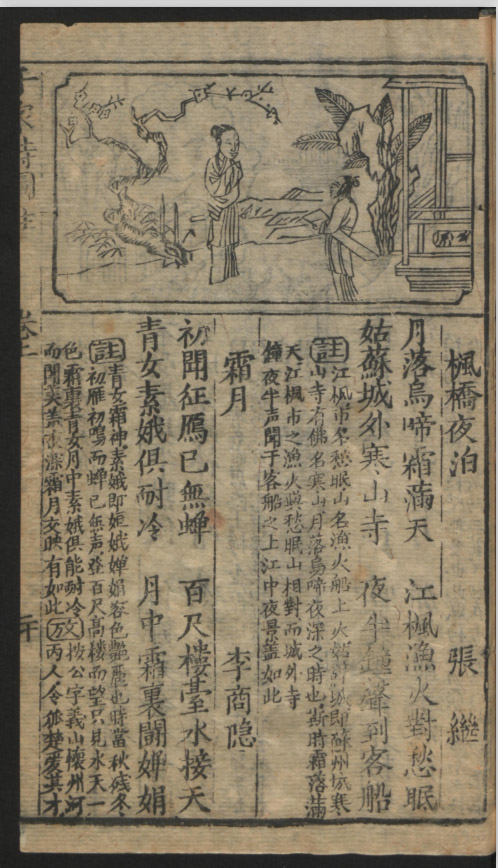 楓橋夜泊 張繼
月落烏啼霜滿天 江楓漁火對愁眠
姑蘇城外寒山寺 夜半鐘聲到客船
註江楓市名愁眠山名漁火船上火姑蘇城即蘇州城寒
山寺有佛名寒山月落烏啼夜深之時也斯時霜落滿
天江楓市之漁火與愁眠山相對而城外寺
鐘夜半声聞于客船之上江中夜景蓋如此
霜月 李商隐
初聞征鴈已無蟬 百尺樓臺水接天
青女素娥俱耐冷 月中霜裏闘嬋娟
註青女霜神素娥即姮娥嬋娟容色艷麗也時當秋残冬
初雁初鳴而蟬已無声登百尺高楼而望只見水天一
色霜重青女月中素娥俱能耐冷文按公字義山懷州河
而闘霜月交映有如此万丙人令狐楚愛其才
卷二